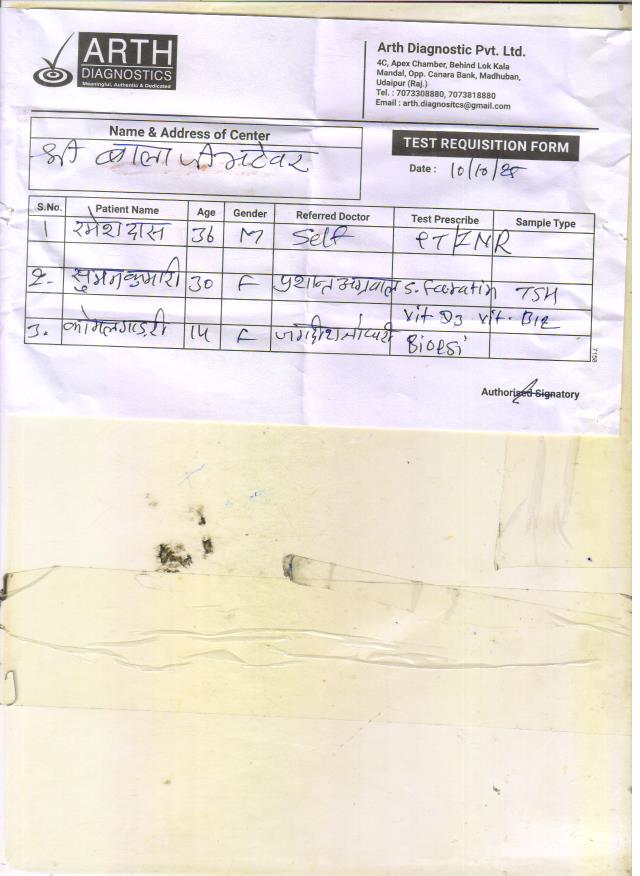 ARTH
DIAGNOSTICS
Meaningful, Authentic & Dedicated
Arth Diagnostic Pvt. Ltd.
4C, Apex Chamber, Behind Lok Kala
Mandal, Opp. Canara Bank, Madhuban,
Udaipur (Raj.)
Tel. : 7073308880, 7073818880
Email : arth.diagnositcs@gmail.com
Name & Address of Center
श्री बाला जी भटेवर
TEST REQUISITION FORM
Date : 10/10/25
S.No. Patient Name Age Gender Referred Doctor Test Prescribe Sample Type
1 रमेश दास 36 M Self PT/INR
2. सुमन कुमारी 30 F प्रशान्त अग्रवाल S. Faratin TSH
Vit D3 Vit. B12
3. कोमल गाडरी 14 F जगदीश Biopsi
7158
Authorised Signatory